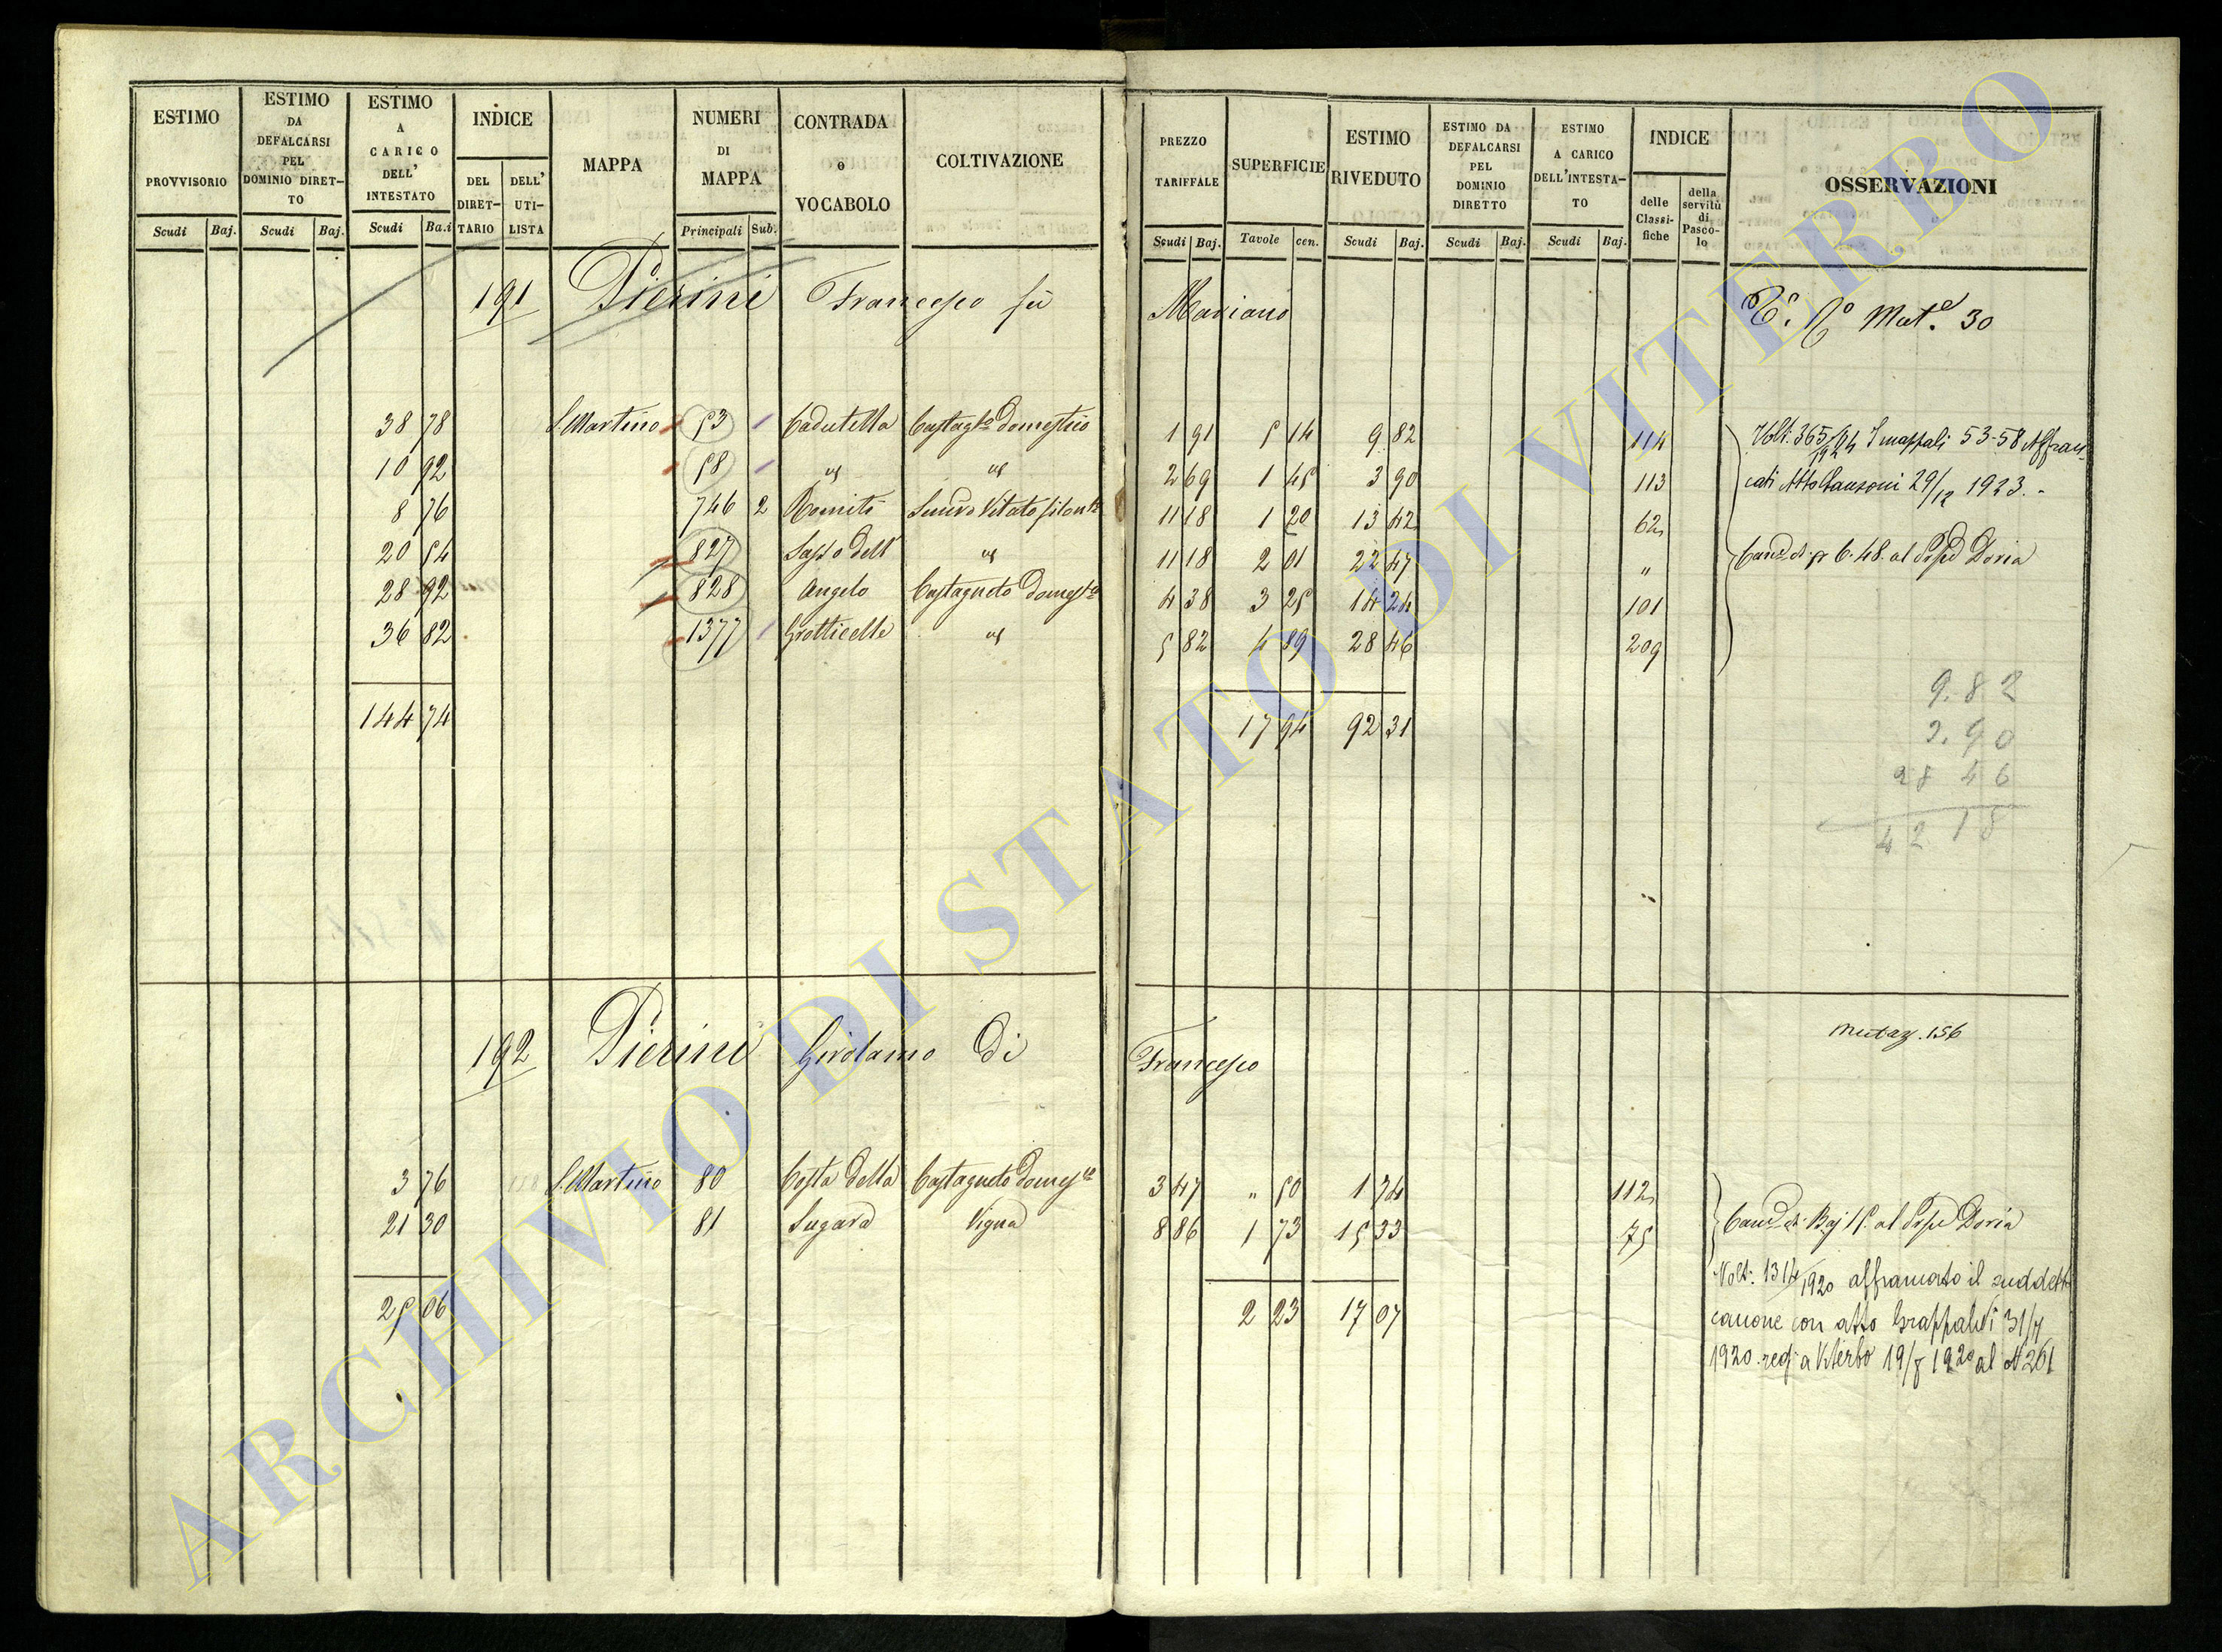 ESTIMO PROVVISORIO Scudi Baj.
ESTIMO DA DEFALCARSI PEL DOMINIO DIRETTO Scudi Baj.
ESTIMO A CARICO DELL' INTESTATO Scudi Ba.i
INDICE DEL DIRETTARIO DELL' UTILISTA
MAPPA
NUMERI DI MAPPA Principali Sub.
CONTRADA o VOCABOLO
COLTIVAZIONE
PREZZO TARIFFALE Scudi Baj.
SUPERFICIE Tavole cen.
ESTIMO RIVEDUTO Scudi Baj.
ESTIMO DA DEFALCARSI PEL DOMINIO DIRETTO Scudi Baj.
ESTIMO A CARICO DELL'INTESTATO Scudi Baj.
INDICE delle Classifiche della servitù di Pascolo
OSSERVAZIONI
191 Pierini Francesco fu Mariano Mut.e 30
38 78 S. Martino 53 Cadutella Castag.to Domestico 1 91 5 14 9 82 114
10 92 58 " " 2 69 1 45 3 90 113
8 76 746 2 Romiti Semivo Vitato 11 18 1 20 13 42 62
20 54 827 Sasso dell' " 11 18 2 01 22 47 "
28 92 828 Angelo Castagneto Domest.co 4 38 3 25 14 24 101
36 82 1377 Grotticelle " 5 82 4 89 28 46 209
144 74 17 94 92 31
Volt. 365/1924 I mappali 53-58 Affran-
cati Atto 29/12 1923.
6.48. al Doria
9.82
3.90
28 46
42 18
192 Pierini Girolamo di Francesco
Mutaz. 156
3 76 S. Martino 80 Costa della Castagneto Domes.co 3 47 " 50 1 74 112
21 30 81 Sugara Vigna 8 86 1 73 15 33 75
25 06 2 23 17 07
Baj 15 al Doria
Volt. 1314/1920 affrancato il suddetto
canone con atto 31/7
1920 reg. a Viterbo 19/8 1920 al N 201
ARCHIVIO DI STATO DI VITERBO